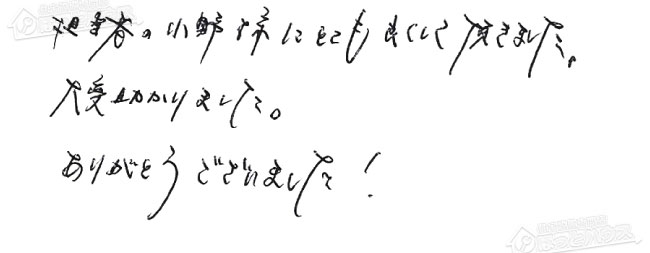 担当者の小野様にとても良くして頂きました。
大変助かりました。
ありがとうございました!